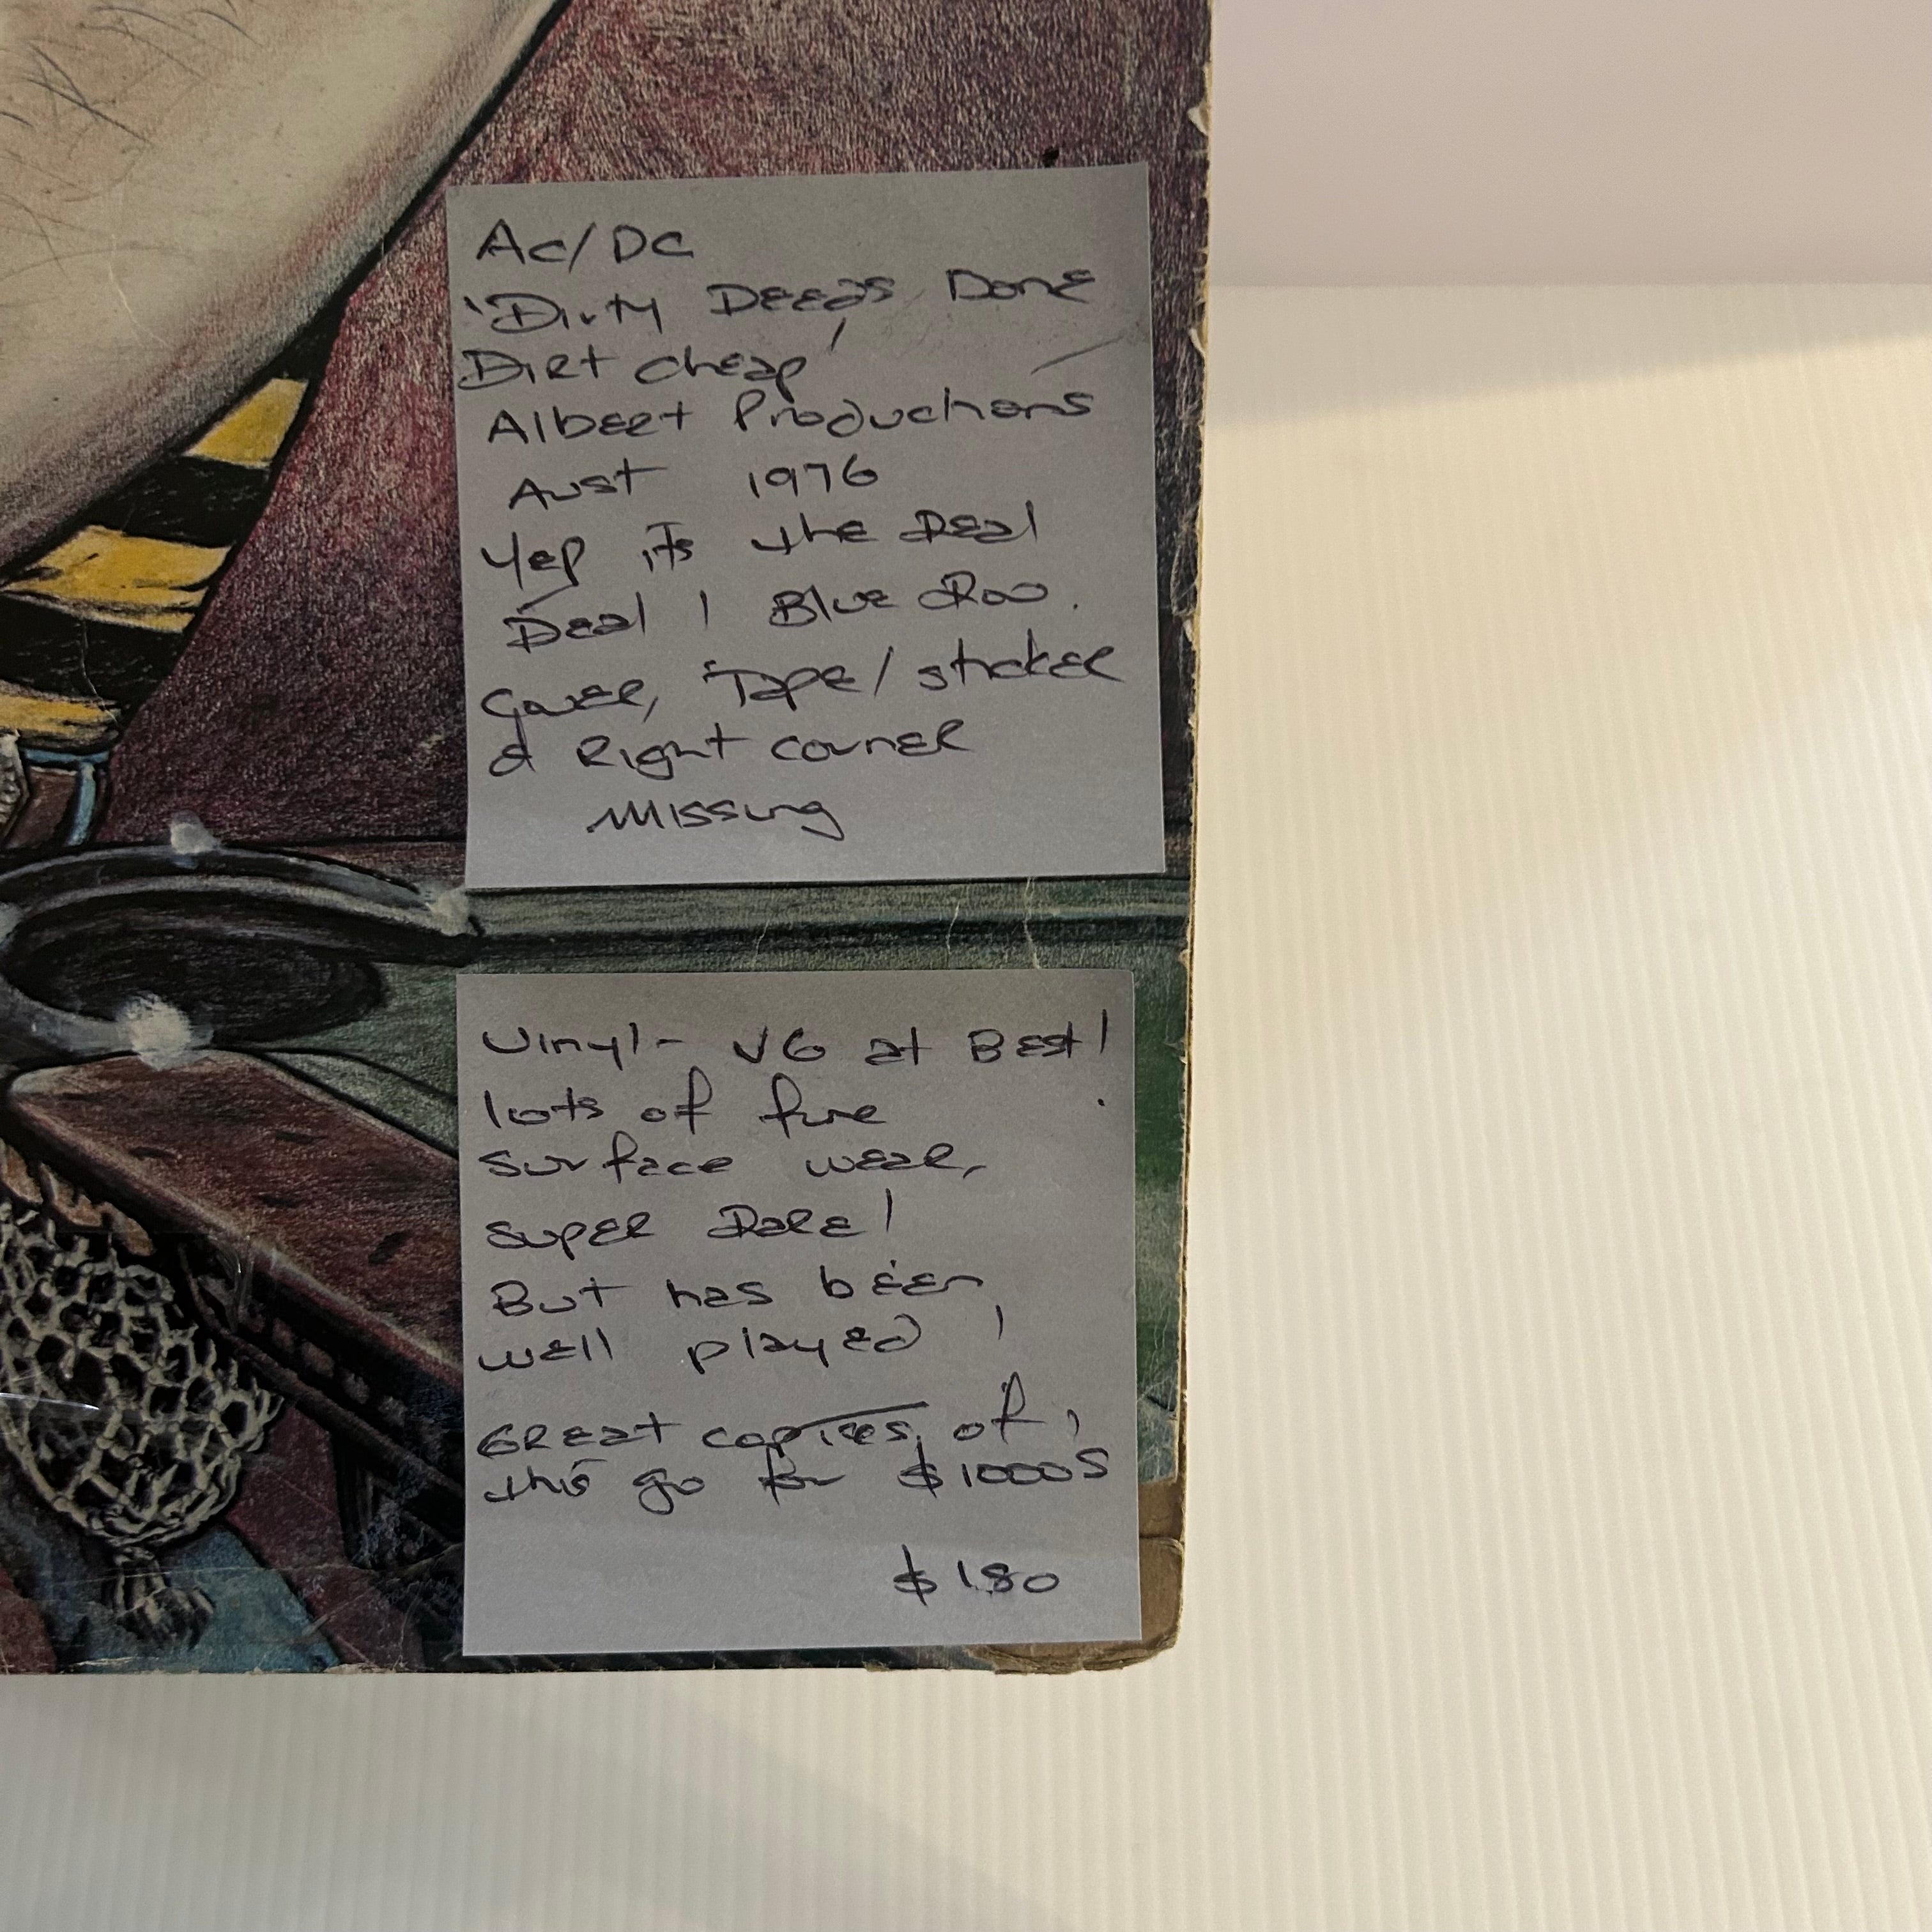 AC/DC
'Dirty Deeds Done
Dirt cheap'
Albert Productions
Aust 1976
Yep its the Real
Deal! Blue Roo.
Cover, Tape/sticker
& Right corner
Missing
Vinyl - VG at Best!
lots of fine
surface wear,
super Rare!
But has been
well played!
Great copies of
this go for $1000s
$180